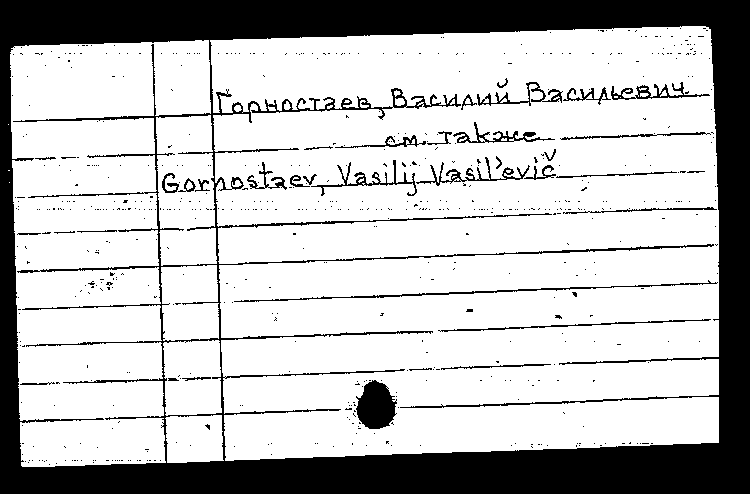 Горностаев, Василий Васильевич
см. также
Gornostaev, Vasilij Vasil'evič